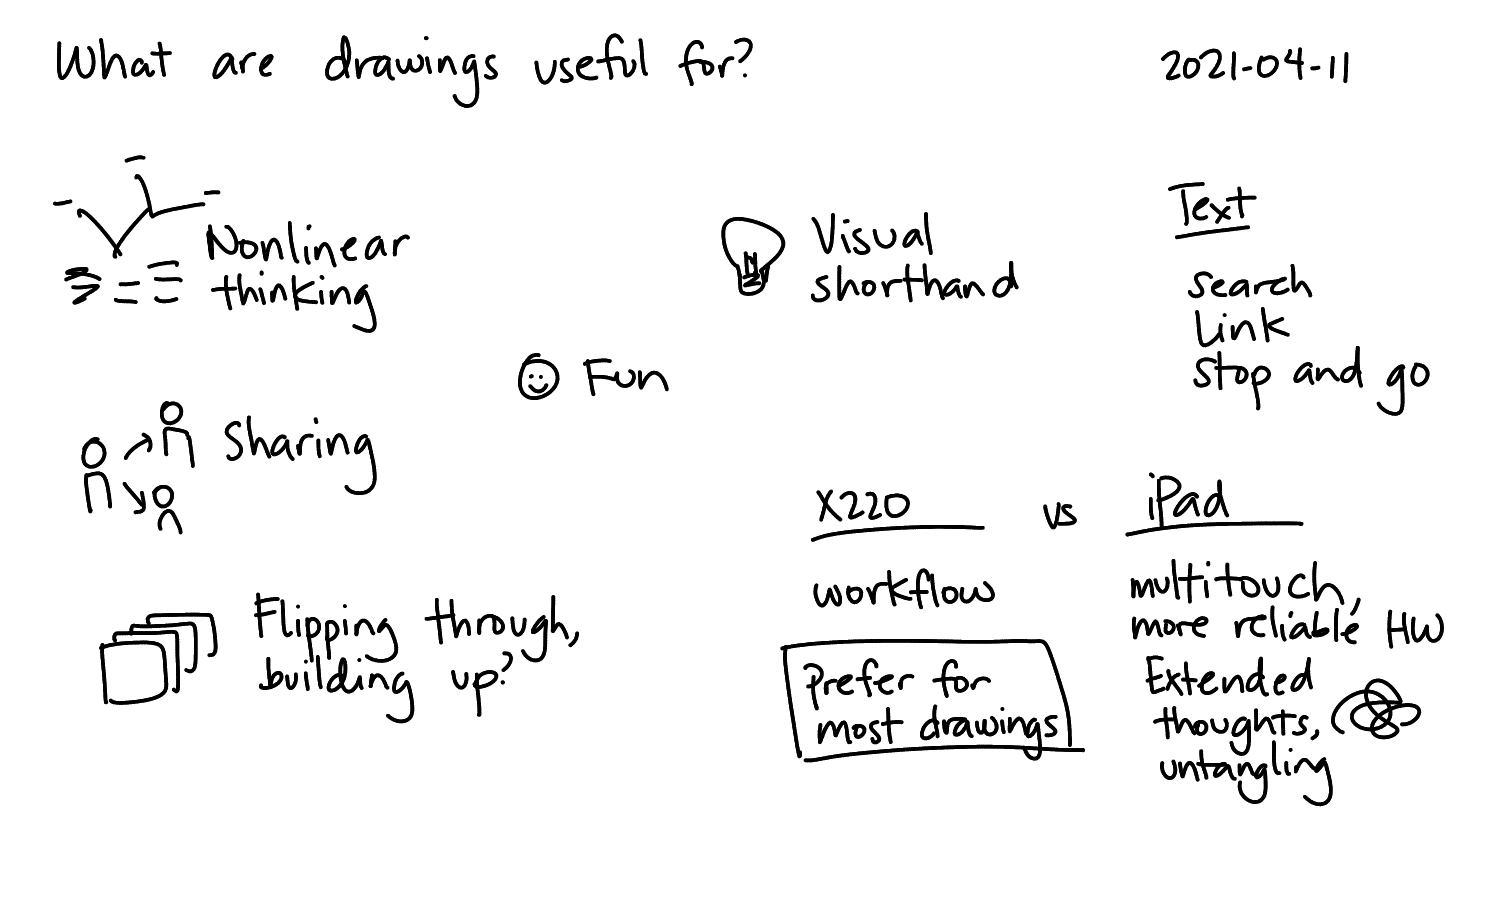 What are drawings useful for?
2021-04-11
Nonlinear
thinking
Visual
shorthand
Text
search
link
stop and go
Fun
Sharing
X220 vs iPad
workflow
Prefer for
most drawings
multitouch,
more reliable HW
Extended
thoughts,
untangling
Flipping through,
building up?